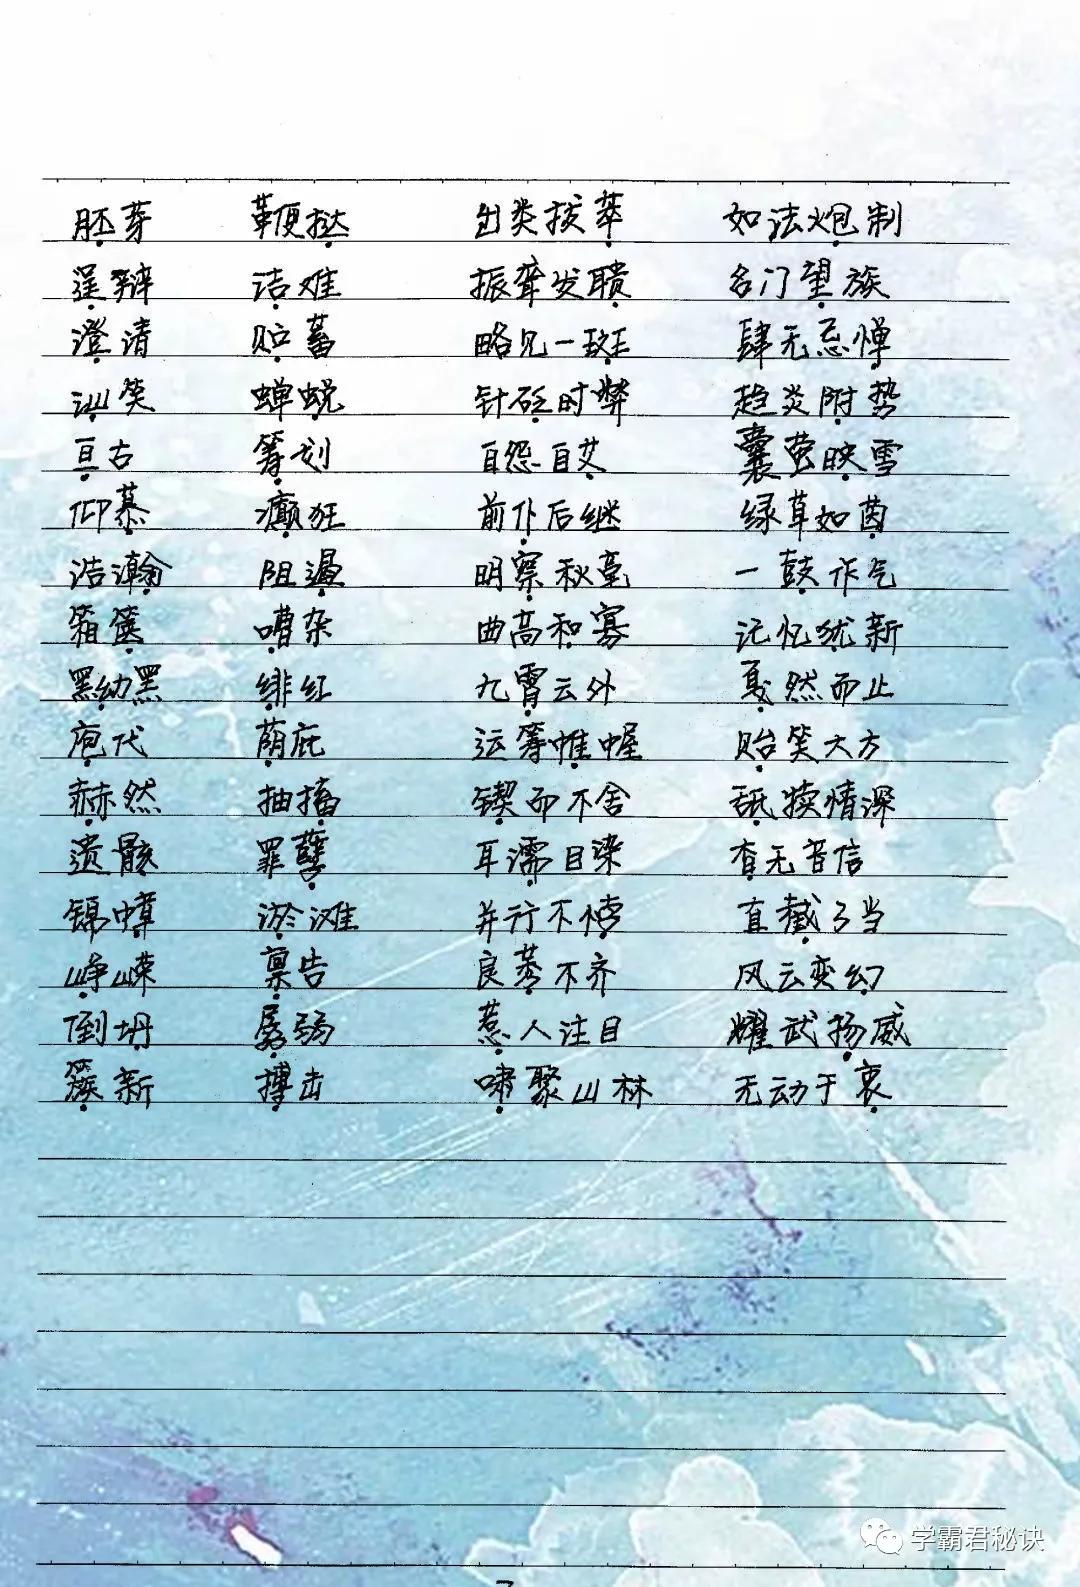 胚芽 鞭挞 出类拔萃 如法炮制
逞辩 诘难 振聋发聩 名门望族
澄清 贮蓄 略见一斑 肆无忌惮
讪笑 蝉蜕 针砭时弊 趋炎附势
亘古 筹划 自怨自艾 囊萤映雪
仰慕 癫狂 前仆后继 绿草如茵
浩瀚 阻遏 明察秋毫 一鼓作气
箱箧 嘈杂 曲高和寡 记忆犹新
黝黑 绯红 九霄云外 戛然而止
庖代 荫庇 运筹帷幄 贻笑大方
赫然 抽搐 锲而不舍 舐犊情深
遗骸 罪孽 耳濡目染 杳无音信
锦幛 淤滩 并行不悖 直截了当
峥嵘 禀告 良莠不齐 风云变幻
倒坍 孱弱 惹人注目 耀武扬威
簇新 搏击 啸聚山林 无动于衷
学霸君秘诀